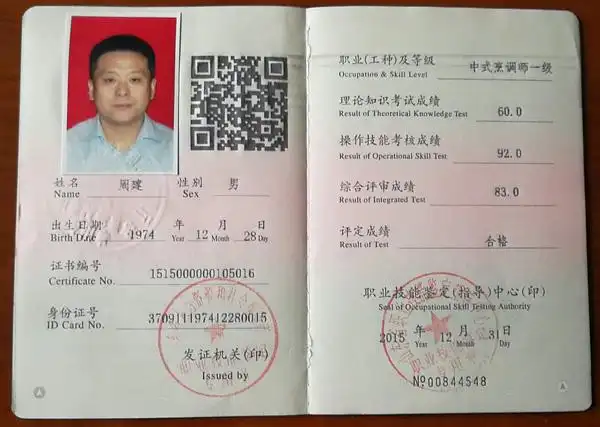 姓名 周建 性别 男
Name Sex
出生日期 1974 年 12 月 28 日
Birth Date Year Month Day
证书编号 1515000000105016
Certificate No.
身份证号 370911197412280015
ID Card No.
发证机关(印)
Issued by
职业(工种)及等级 中式烹调师一级
Occupation & Skill Level
理论知识考试成绩 60.0
Result of Theoretical Knowledge Test
操作技能考核成绩 92.0
Result of Operational Skill Test
综合评审成绩 83.0
Result of Integrated Test
评定成绩 合格
Result of Test
职业技能鉴定(指导)中心(印)
Seal of Occupational Skill Testing Authority
2015 年 12 月 日
Year Month Day
№00844548